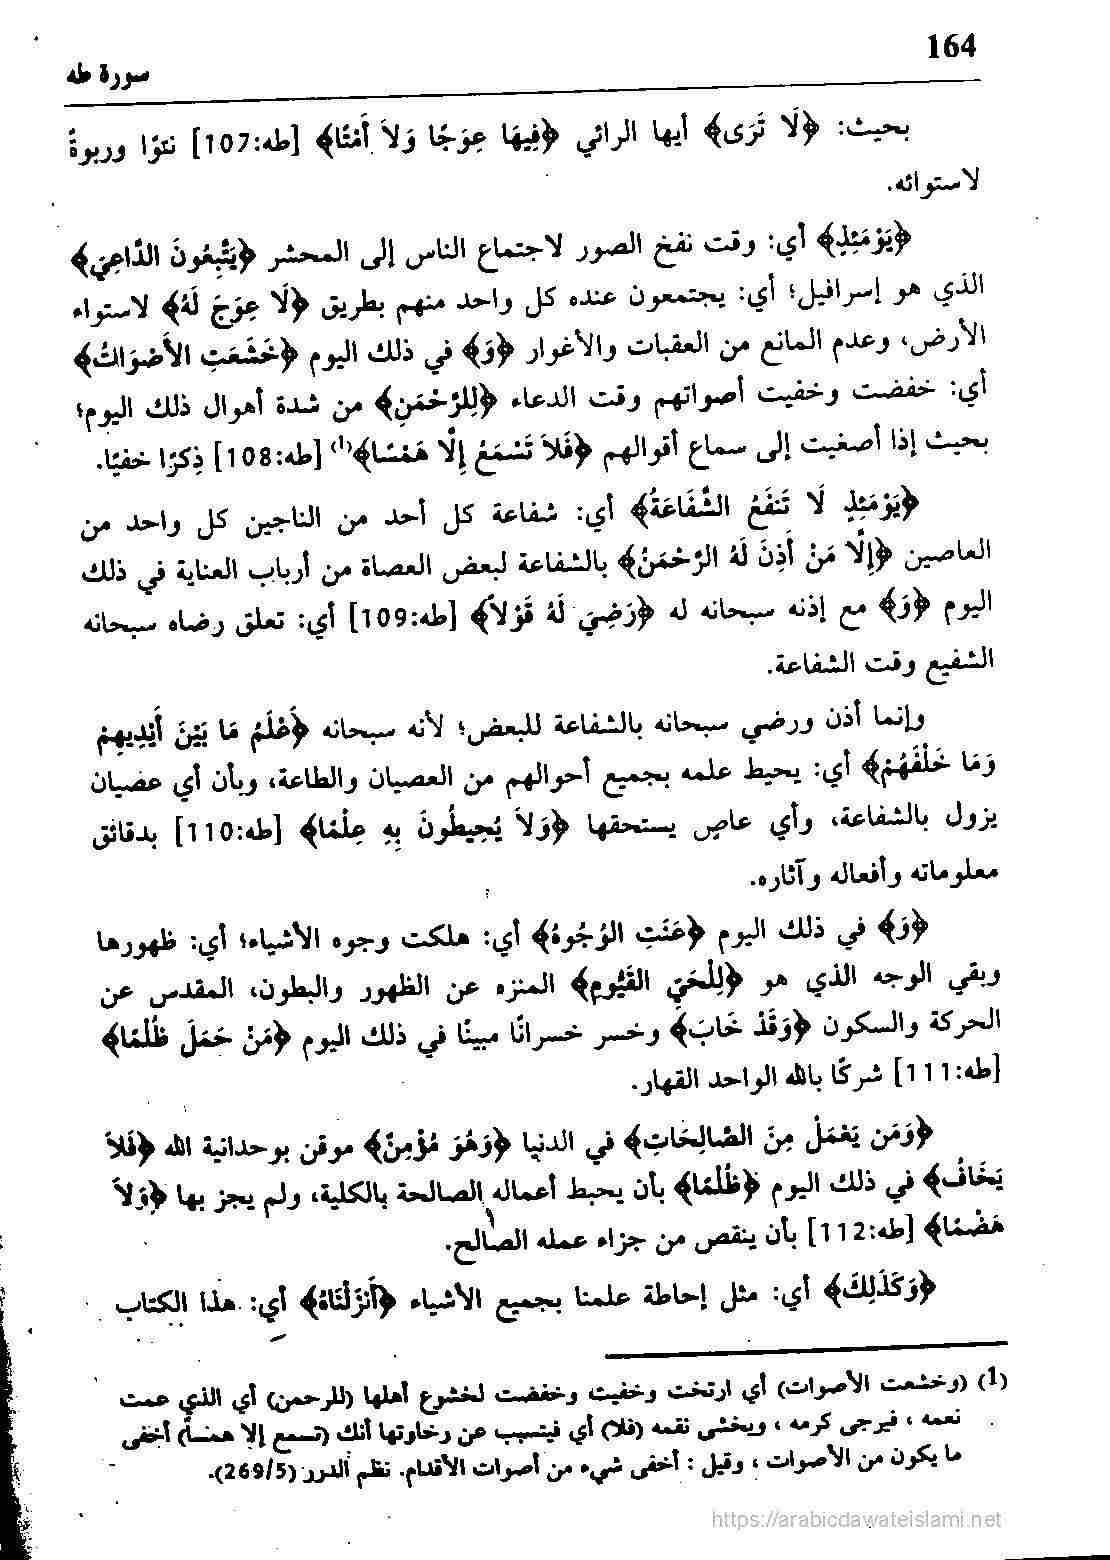 164
سورة طه
بحيث: ﴿لَا تَرَى﴾ أيها الرائي ﴿فِيهَا عِوَجًا وَلاَ أَمْتًا﴾ [طه:107] نتوًا وربوةً
لاستوائه.
﴿يَوْمَئِذٍ﴾ أي: وقت نفخ الصور لاجتماع الناس إلى المحشر ﴿يَتَّبِعُونَ الدَّاعِيَ﴾
الذي هو إسرافيل؛ أي: يجتمعون عنده كل واحد منهم بطريق ﴿لَا عِوَجَ لَهُ﴾ لاستواء
الأرض، وعدم المانع من العقبات والأغوار ﴿وَ﴾ في ذلك اليوم ﴿خَشَعَتِ الأَصْوَاتُ﴾
أي: خفضت وخفيت أصواتهم وقت الدعاء ﴿لِلرَّحْمَنِ﴾ من شدة أهوال ذلك اليوم؛
بحيث إذا أصغيت إلى سماع أقوالهم ﴿فَلاَ تَسْمَعُ إِلَّا هَمْسًا﴾(1) [طه:108] ذِكرًا خفيًا.
﴿يَوْمَئِذٍ لَا تَنفَعُ الشَّفَاعَةُ﴾ أي: شفاعة كل أحد من الناجين كل واحد من
العاصين ﴿إِلَّا مَنْ أَذِنَ لَهُ الرَّحْمَنُ﴾ بالشفاعة لبعض العصاة من أرباب العناية في ذلك
اليوم ﴿وَ﴾ مع إذنه سبحانه له ﴿رَضِيَ لَهُ قَوْلاً﴾ [طه:109] أي: تعلق رضاه سبحانه
الشفيع وقت الشفاعة.
وإنما أذن ورضي سبحانه بالشفاعة للبعض؛ لأنه سبحانه ﴿عْلَمُ مَا بَيْنَ أَيْدِيهِمْ
وَمَا خَلْفَهُمْ﴾ أي: يحيط علمه بجميع أحوالهم من العصيان والطاعة، وبأن أي عضيان
يزول بالشفاعة، وأي عاصٍ يستحقها ﴿وَلاَ يُحِيطُونَ بِهِ عِلْمًا﴾ [طه:110] بدقائق
معلوماته وأفعاله وآثاره.
﴿وَ﴾ في ذلك اليوم ﴿عَنَتِ الوُجُوهُ﴾ أي: هلكت وجوه الأشياء؛ أي: ظهورها
وبقي الوجه الذي هو ﴿لِلْحَيِّ القَيُّومِ﴾ المنزه عن الظهور والبطون، المقدس عن
الحركة والسكون ﴿وَقَدْ خَابَ﴾ وخسر خسرانًا مبينًا في ذلك اليوم ﴿مَنْ حَمَلَ ظُلْمًا﴾
[طه:111] شركًا بالله الواحد القهار.
﴿وَمَن يَعْمَلْ مِنَ الصَّالِحَاتِ﴾ في الدنيا ﴿وَهُوَ مُؤْمِنٌ﴾ موقن بوحدانية الله ﴿فَلاَ
يَخَافُ﴾ في ذلك اليوم ﴿ظُلْمًا﴾ بأن يحبط أعماله الصالحة بالكلية، ولم يجز بها ﴿وَلاَ
هَضْمًا﴾ [طه:112] بأن ينقص من جزاء عمله الصالح.
﴿وَكَذَلِكَ﴾ أي: مثل إحاطة علمنا بجميع الأشياء ﴿أَنزَلْنَاهُ﴾ أي: هذا الكتاب
(1) (وخشعت الأصوات) أي ارتخت وخفيت وخفضت لخشوع أهلها (للرحمن) أي الذي عمت
نعمه ، فيرجى كرمه ، ويخشى نقمه (فلا) أي فيتسبب عن رخاوتها أنك (تسمع إلا همساً) أخفى
ما يكون من الأصوات ، وقيل : أخفى شيء من أصوات الأقدام. نظم الدرر (269/5).
https://arabicdawateislami.net